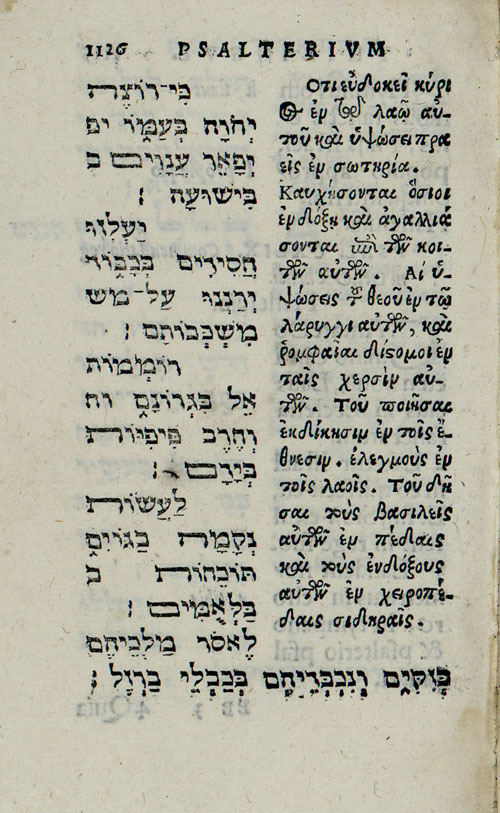 1126 PSALTERIVM
כִּי־רוֹצֶה
יְהֹוָה בְּעַמּוֹ יפ
יְפָאֵר עֲנָוִים ב
בִּישׁוּעָה ׃
יַעְלְזוּ
חֲסִידִים בְּכָבוֹד
יְרַנְּנוּ עַל־מש
מִשְׁכְּבוֹתָם ׃
רוֹמְמוֹת
אֵל בִּגְרוֹנָם וח
וְחֶרֶב פִּיפִיּוֹת
בְּיָדָם ׃
לַעֲשׂוֹת
נְקָמָה בַּגּוֹיִם
תּוֹכֵחוֹת ב
בַּלְאֻמִּים ׃
לֶאְסֹר מַלְכֵיהֶם
בְּזִקִּים וְנִכְבְּדֵיהֶם בְּכַבְלֵי בַרְזֶל ׃
Ὅτι εὐδοκεῖ κύρι
Ος ἐν τῷ λαῷ αὐ-
τοῦ καὶ ὑψώσει πρα
εῖς ἐν σωτηρία.
Καυχήσονται ὅσιοι
ἐν δόξῃ καὶ ἀγαλλιά
σονται ἐπὶ τῶν κοι-
τῶν αὐτῶν. Αἱ ὑ-
ψώσεις τοῦ θεοῦ ἐν τῷ
λάρυγγι αὐτῶν, καὶ
ῥομφαῖαι δίστομοι ἐν
ταῖς χερσὶν αὐ-
τῶν. Τοῦ ποιῆσαι
ἐκδίκησιν ἐν τοῖς ἔ-
θνεσιν. ἐλεγμοὺς ἐν
τοῖς λαοῖς. Τοῦ δῆ
σαι τοὺς βασιλεῖς
αὐτῶν ἐν πέδαις
καὶ τοὺς ἐνδόξους
αὐτῶν ἐν χειροπέ-
δαις σιδηραῖς.